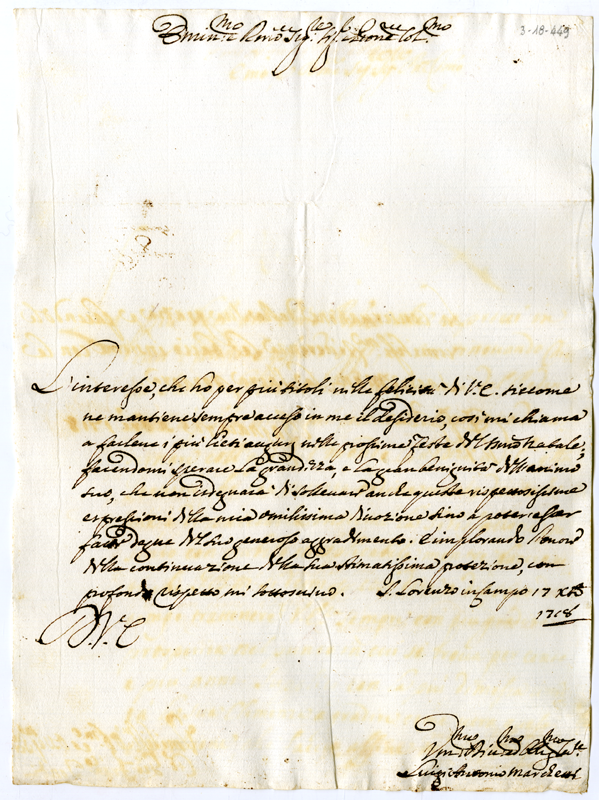 Emin.mo e Rev.mo Sig.re Sig.re e Prone Col.mo
3-18-449
L'interesse, che ho per più titoli nella felicità di V.E. siccome
ne mantiene sempre acceso in me il desiderio, così mi chiama
a farlene i più lieti augurj nelle prossime Feste del S.mo Natale;
facendomi sperare la grandezza, e la gran benignità dell'animo
suo, che non isdegnarà di sollevare anche queste rispettosissime
espressioni della mia umilissima divozione sino a poter esser
fatte degne del suo generoso aggradimento: E implorando l'onore
della continuazione della sua stimatissima protezione, con
profondo rispetto mi sottoscrivo. S. Lorenzo in Campo 17 Xbre
1718
D.V.E.
Um.mo Div.mo ed Obblig.mo Se.re
Luigi Antonio Marchetti